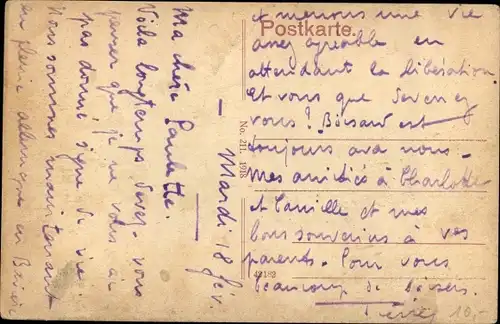 Mardi 18 fév.
Ma chère Paulette.
Voilà longtemps devez-vous
penser que je ne vous ai
pas donné signe de vie.
Nous sommes maintenant
en pleine Allemagne en
Postkarte.
et menons une vie
assez agréable en
attendant la libération.
Et vous que devenez
vous? est
toujours avec nous.
Mes amitiés à Charlotte
et Camille et mes
bons souvenirs à vos
parents. Pour vous
beaucoup de baisers.
Pierre
10,-
No. 211. 1918
42182